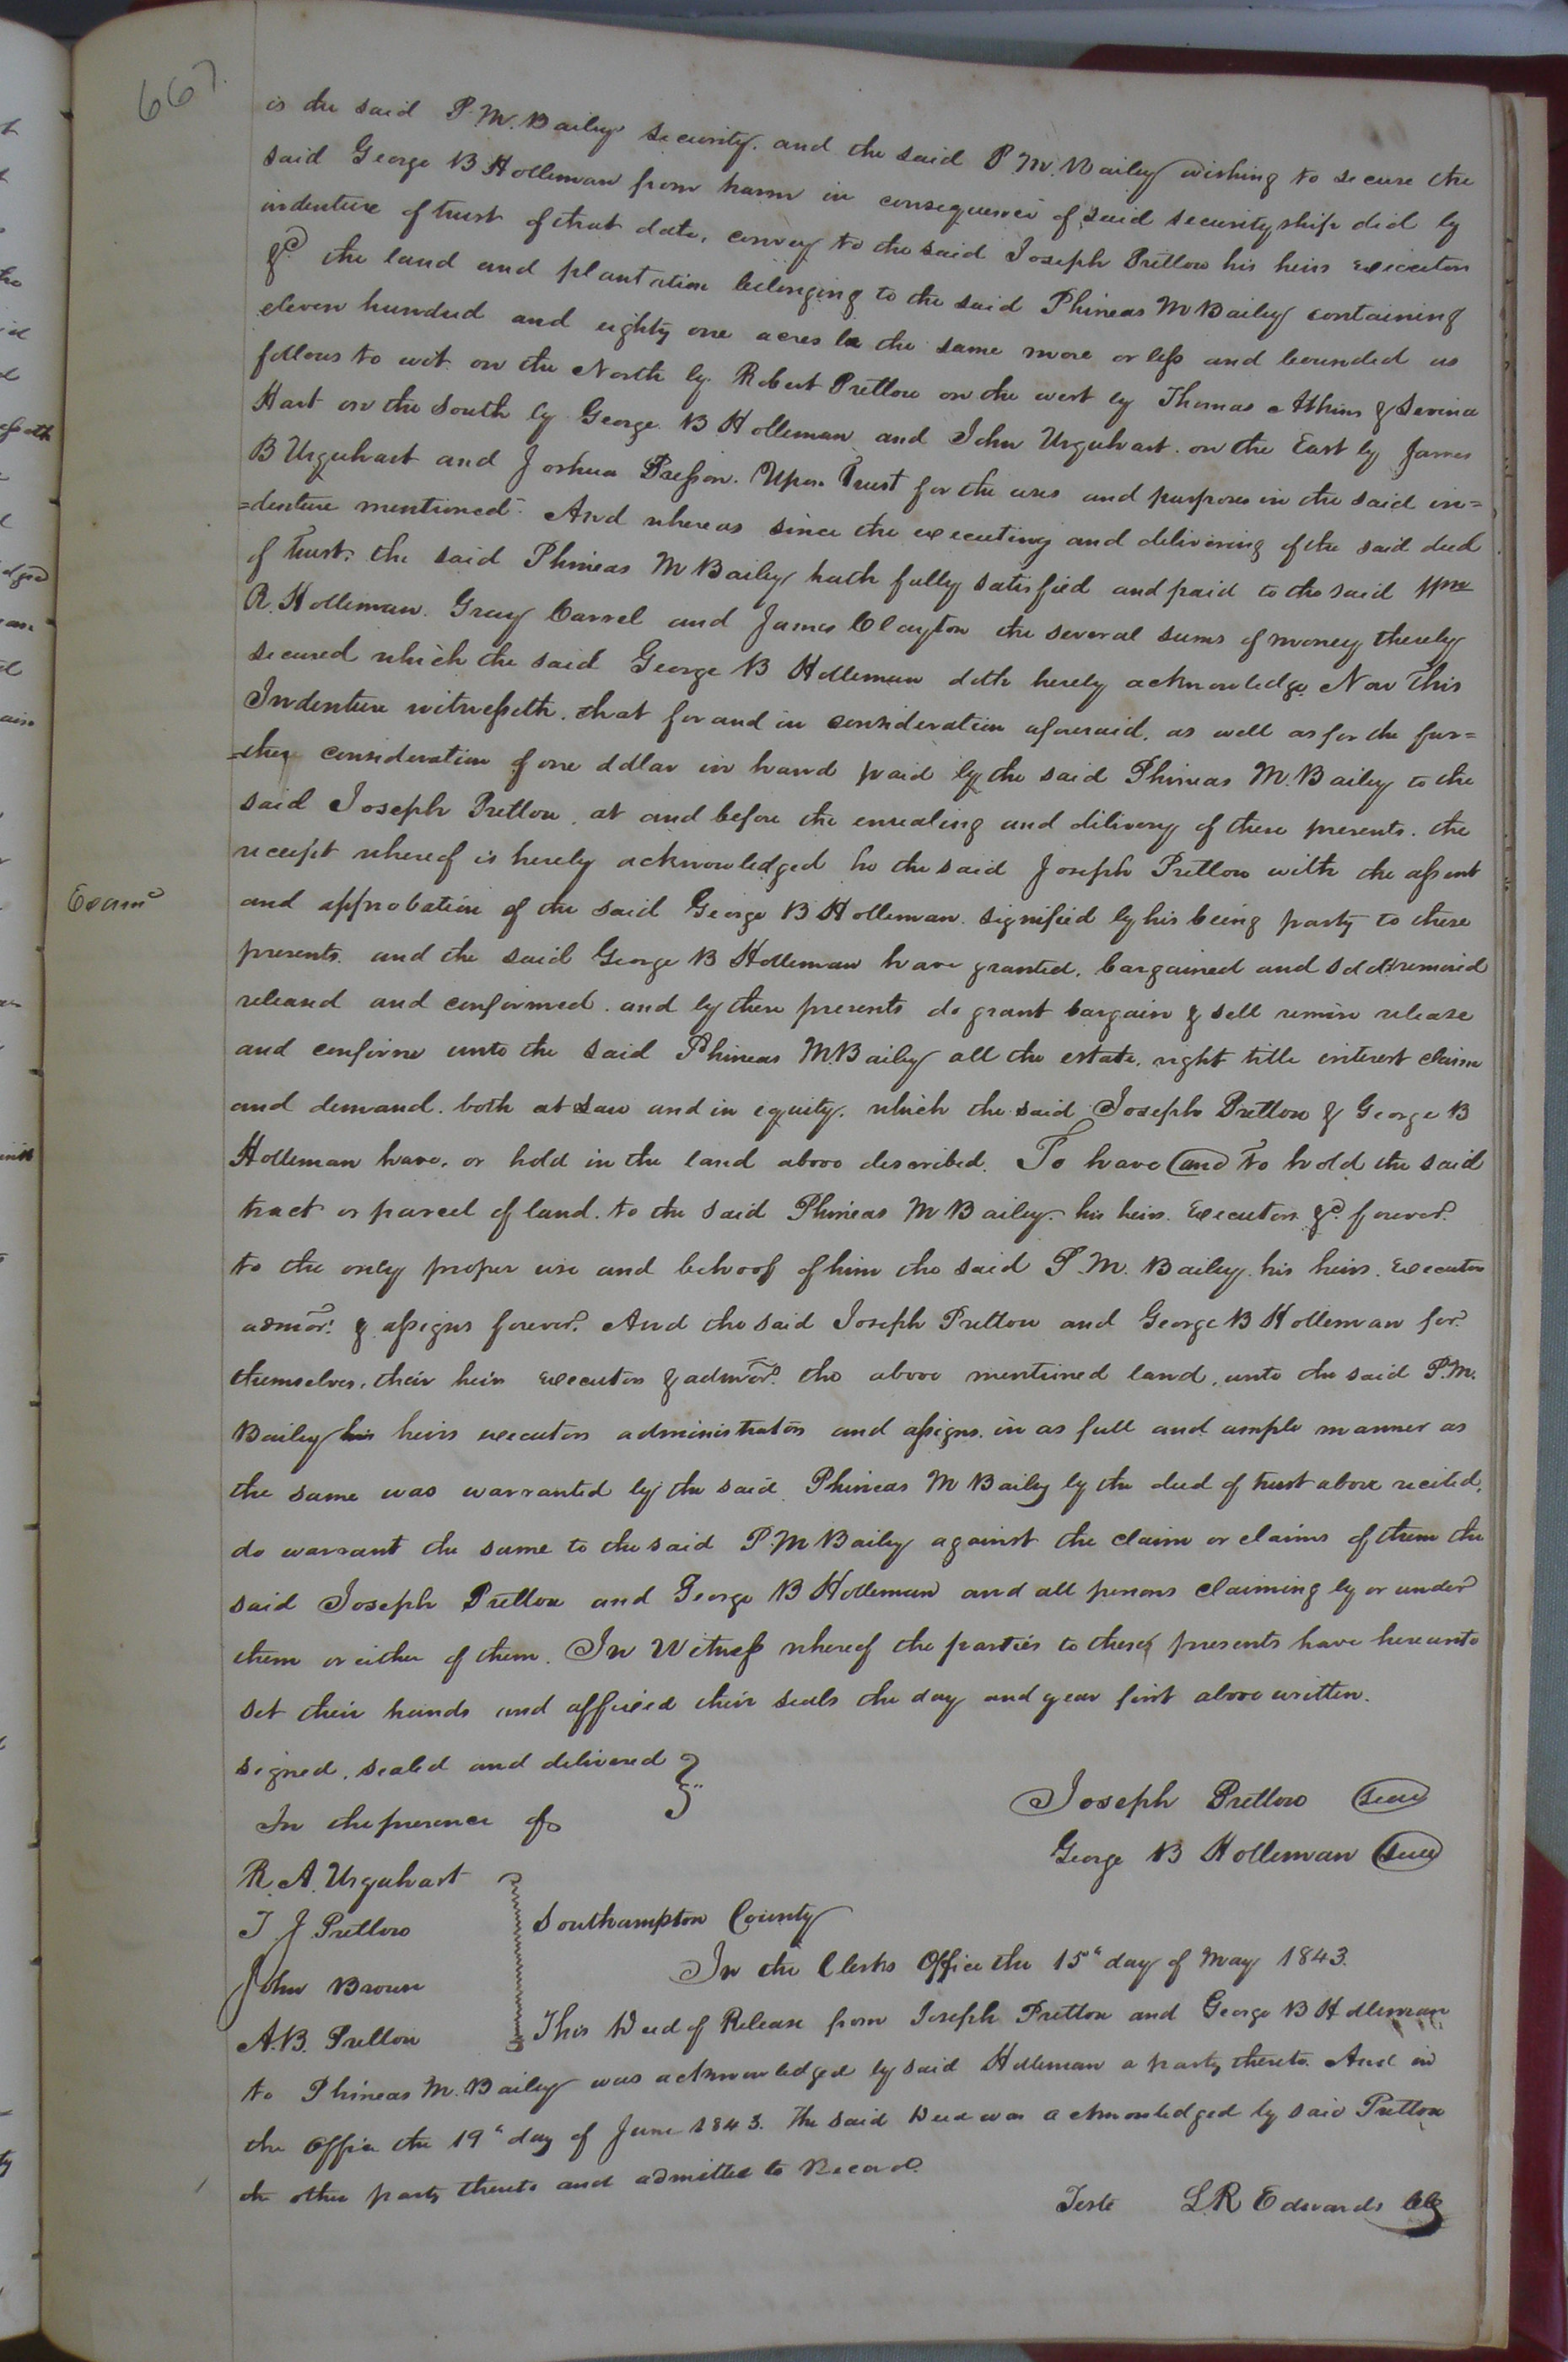 667.
is the said P. M. Bailey's security. and the said P. M. Bailey wishing to secure the
said George B Holleman from harm in consequence of said securityship did by
indenture of trust of that date, convey to the said Joseph Pretlow his heirs executors
&c the land and plantation belonging to the said Phineas M Bailey containing
eleven hundred and eighty one acres be the same more or less and bounded as
follows to wit. on the North by Robert Pretlow on the west by Thomas Atkins & Levina
Hart on the South by George B Holleman and John Urquhart. on the East by James
B Urquhart and Joshua Presson. Upon Trust for the uses and purposes in the said in=
=denture mentioned. And whereas since the executing and delivering of the said deed
of trust, the said Phineas M Bailey hath fully satisfied and paid to the said Wm
R. Holleman. Gray Carrel and James Clayton the several sums of money thereby
secured which the said George B Holleman doth hereby acknowledge Now This
Indenture witnesseth. that for and in consideration aforesaid, as well as for the fur=
=ther consideration of one dollar in hand paid by the said Phineas M. Bailey to the
said Joseph Pretlow, at and before the ensealing and delivery of these presents. the
receipt whereof is hereby acknowledged he the said Joseph Pretlow with the assent
Examd
and approbation of the said George B Holleman. signified by his being party to these
presents. and the said George B Holleman have granted, bargained and sold remised
released and confirmed. and by these presents do grant bargain & sell remise release
and confirm unto the said Phineas M. Bailey all the estate, right title interest claim
and demand. both at Law and in equity. which the said Joseph Pretlow & George B
Holleman have, or hold in the land above described. To have and To hold the said
tract or parcel of land. to the said Phineas M Bailey. his heirs. Executors &c. forever.
to the only proper use and behoof of him the said P. M. Bailey. his heirs. Executors
admors. & assigns forever. And the said Joseph Pretlow and George B Holleman for
themselves, their heirs executors & admors. the above mentioned land, unto the said P. M.
Bailey his heirs executors administrators and assigns. in as full and ample manner as
the same was warranted by the said Phineas M Bailey by the deed of trust above recited,
do warrant the same to the said P. M Bailey against the claim or claims of them the
said Joseph Pretlow and George B Holleman and all persons claiming by or under
them or either of them. In Witness whereof the parties to these presents have hereunto
set their hands and affixed their seals the day and year first above written.
signed, sealed and delivered
In the presence of
Joseph Pretlow Seal
George B Holleman Seal
R. A. Urquhart
T. J. Pretlow
John Brown
A. B. Pretlow
Southampton County
In the Clerks Office the 15th day of May 1843.
This Deed of Release from Joseph Pretlow and George B Holleman
to Phineas M. Bailey was acknowledged by said Holleman a party thereto. And in
the Office the 19th day of June 1843. The said Deed was acknowledged by said Pretlow
the other party thereto and admitted to Record.
Teste L. R Edwards Clk